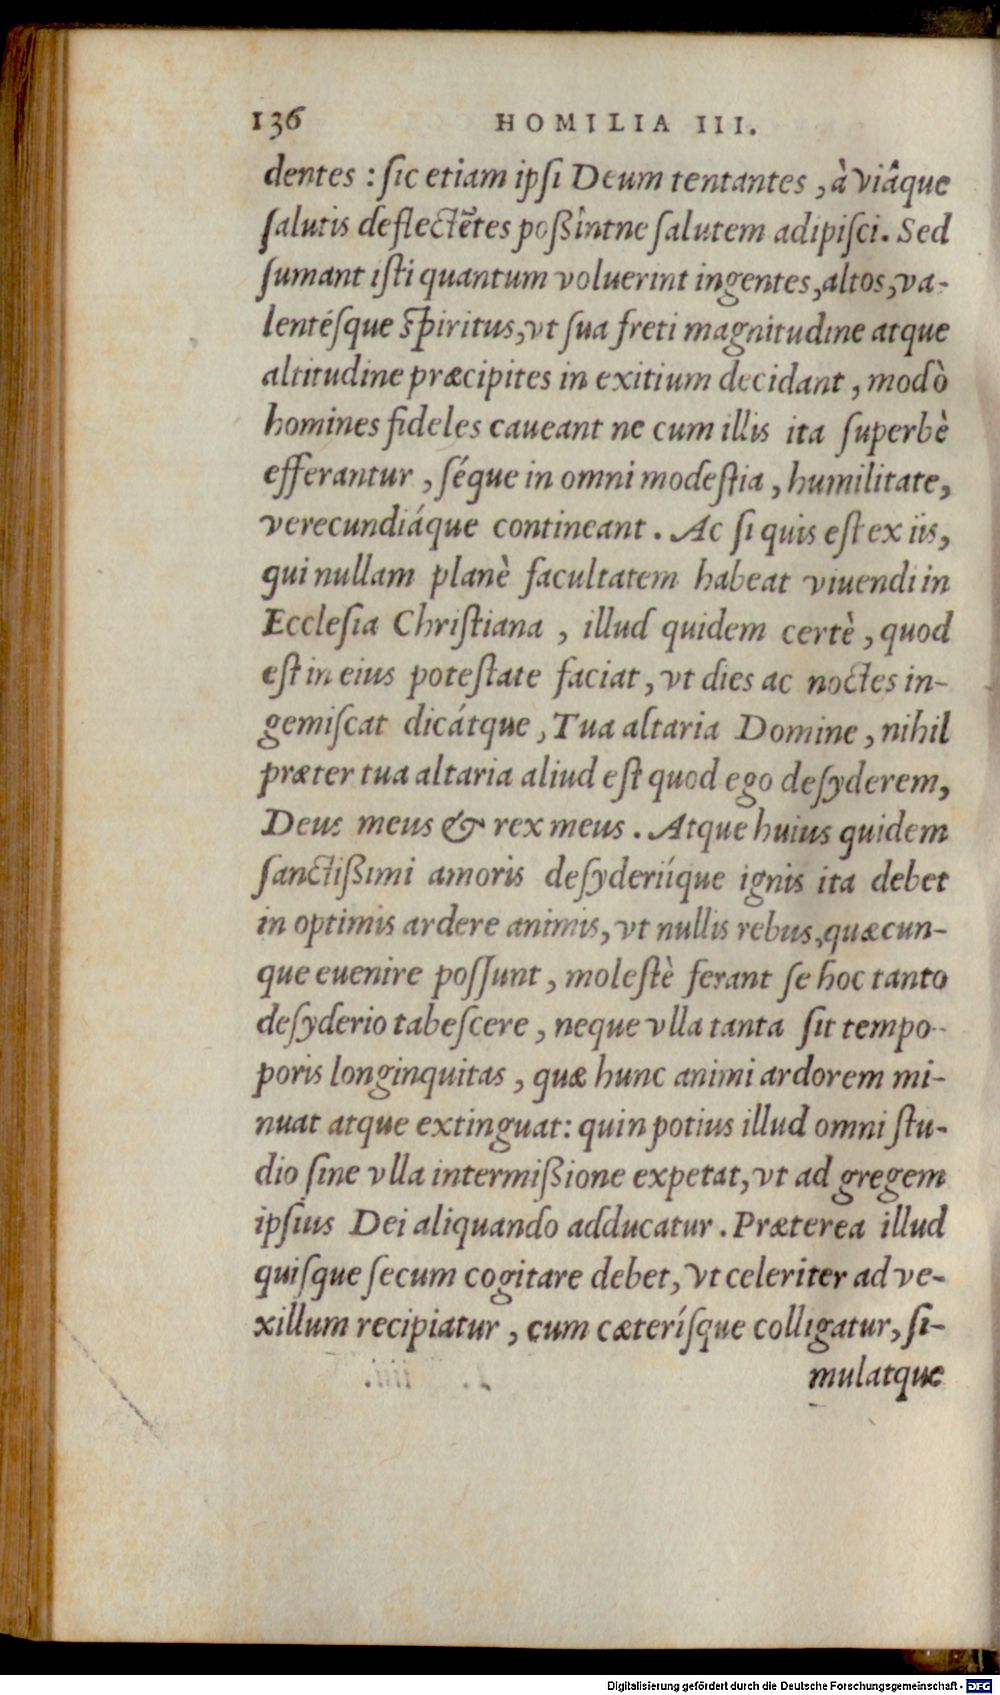 136 HOMILIA III.
dentes : ſic etiam ipſi Deum tentantes , à viâque
ſalutis deflectẽtes poßîntne ſalutem adipiſci. Sed
ſumant iſti quantum voluerint ingentes, altos, va-
lentéſque ſpiritus, vt ſua freti magnitudine atque
altitudine præcipites in exitium decidant , modò
homines fideles caueant ne cum illis ita ſuperbè
efferantur , ſéque in omni modeſtia , humilitate,
verecundiáque contineant . Ac ſi quis eſt ex iis,
qui nullam planè facultatem habeat viuendi in
Eccleſia Chriſtiana , illud quidem certè , quod
eſt in eius poteſtate faciat , vt dies ac noctes in-
gemiſcat dicátque , Tua altaria Domine , nihil
præter tua altaria aliud eſt quod ego deſyderem,
Deus meus & rex meus . Atque huius quidem
ſanctißimi amoris deſyderiíque ignis ita debet
in optimis ardere animis, vt nullis rebus, quæcun-
que euenire poſſunt , moleſtè ferant ſe hoc tanto
deſyderio tabeſcere , neque vlla tanta ſit tempo-
poris longinquitas , quæ hunc animi ardorem mi-
nuat atque extinguat: quin potius illud omni ſtu-
dio ſine vlla intermißione expetat, vt ad gregem
ipſius Dei aliquando adducatur . Præterea illud
quiſque ſecum cogitare debet, vt celeriter ad ve-
xillum recipiatur , cum cæteríſque colligatur, ſi-
mulatque
Digitalisierung gefördert durch die Deutsche Forschungsgemeinschaft - DFG